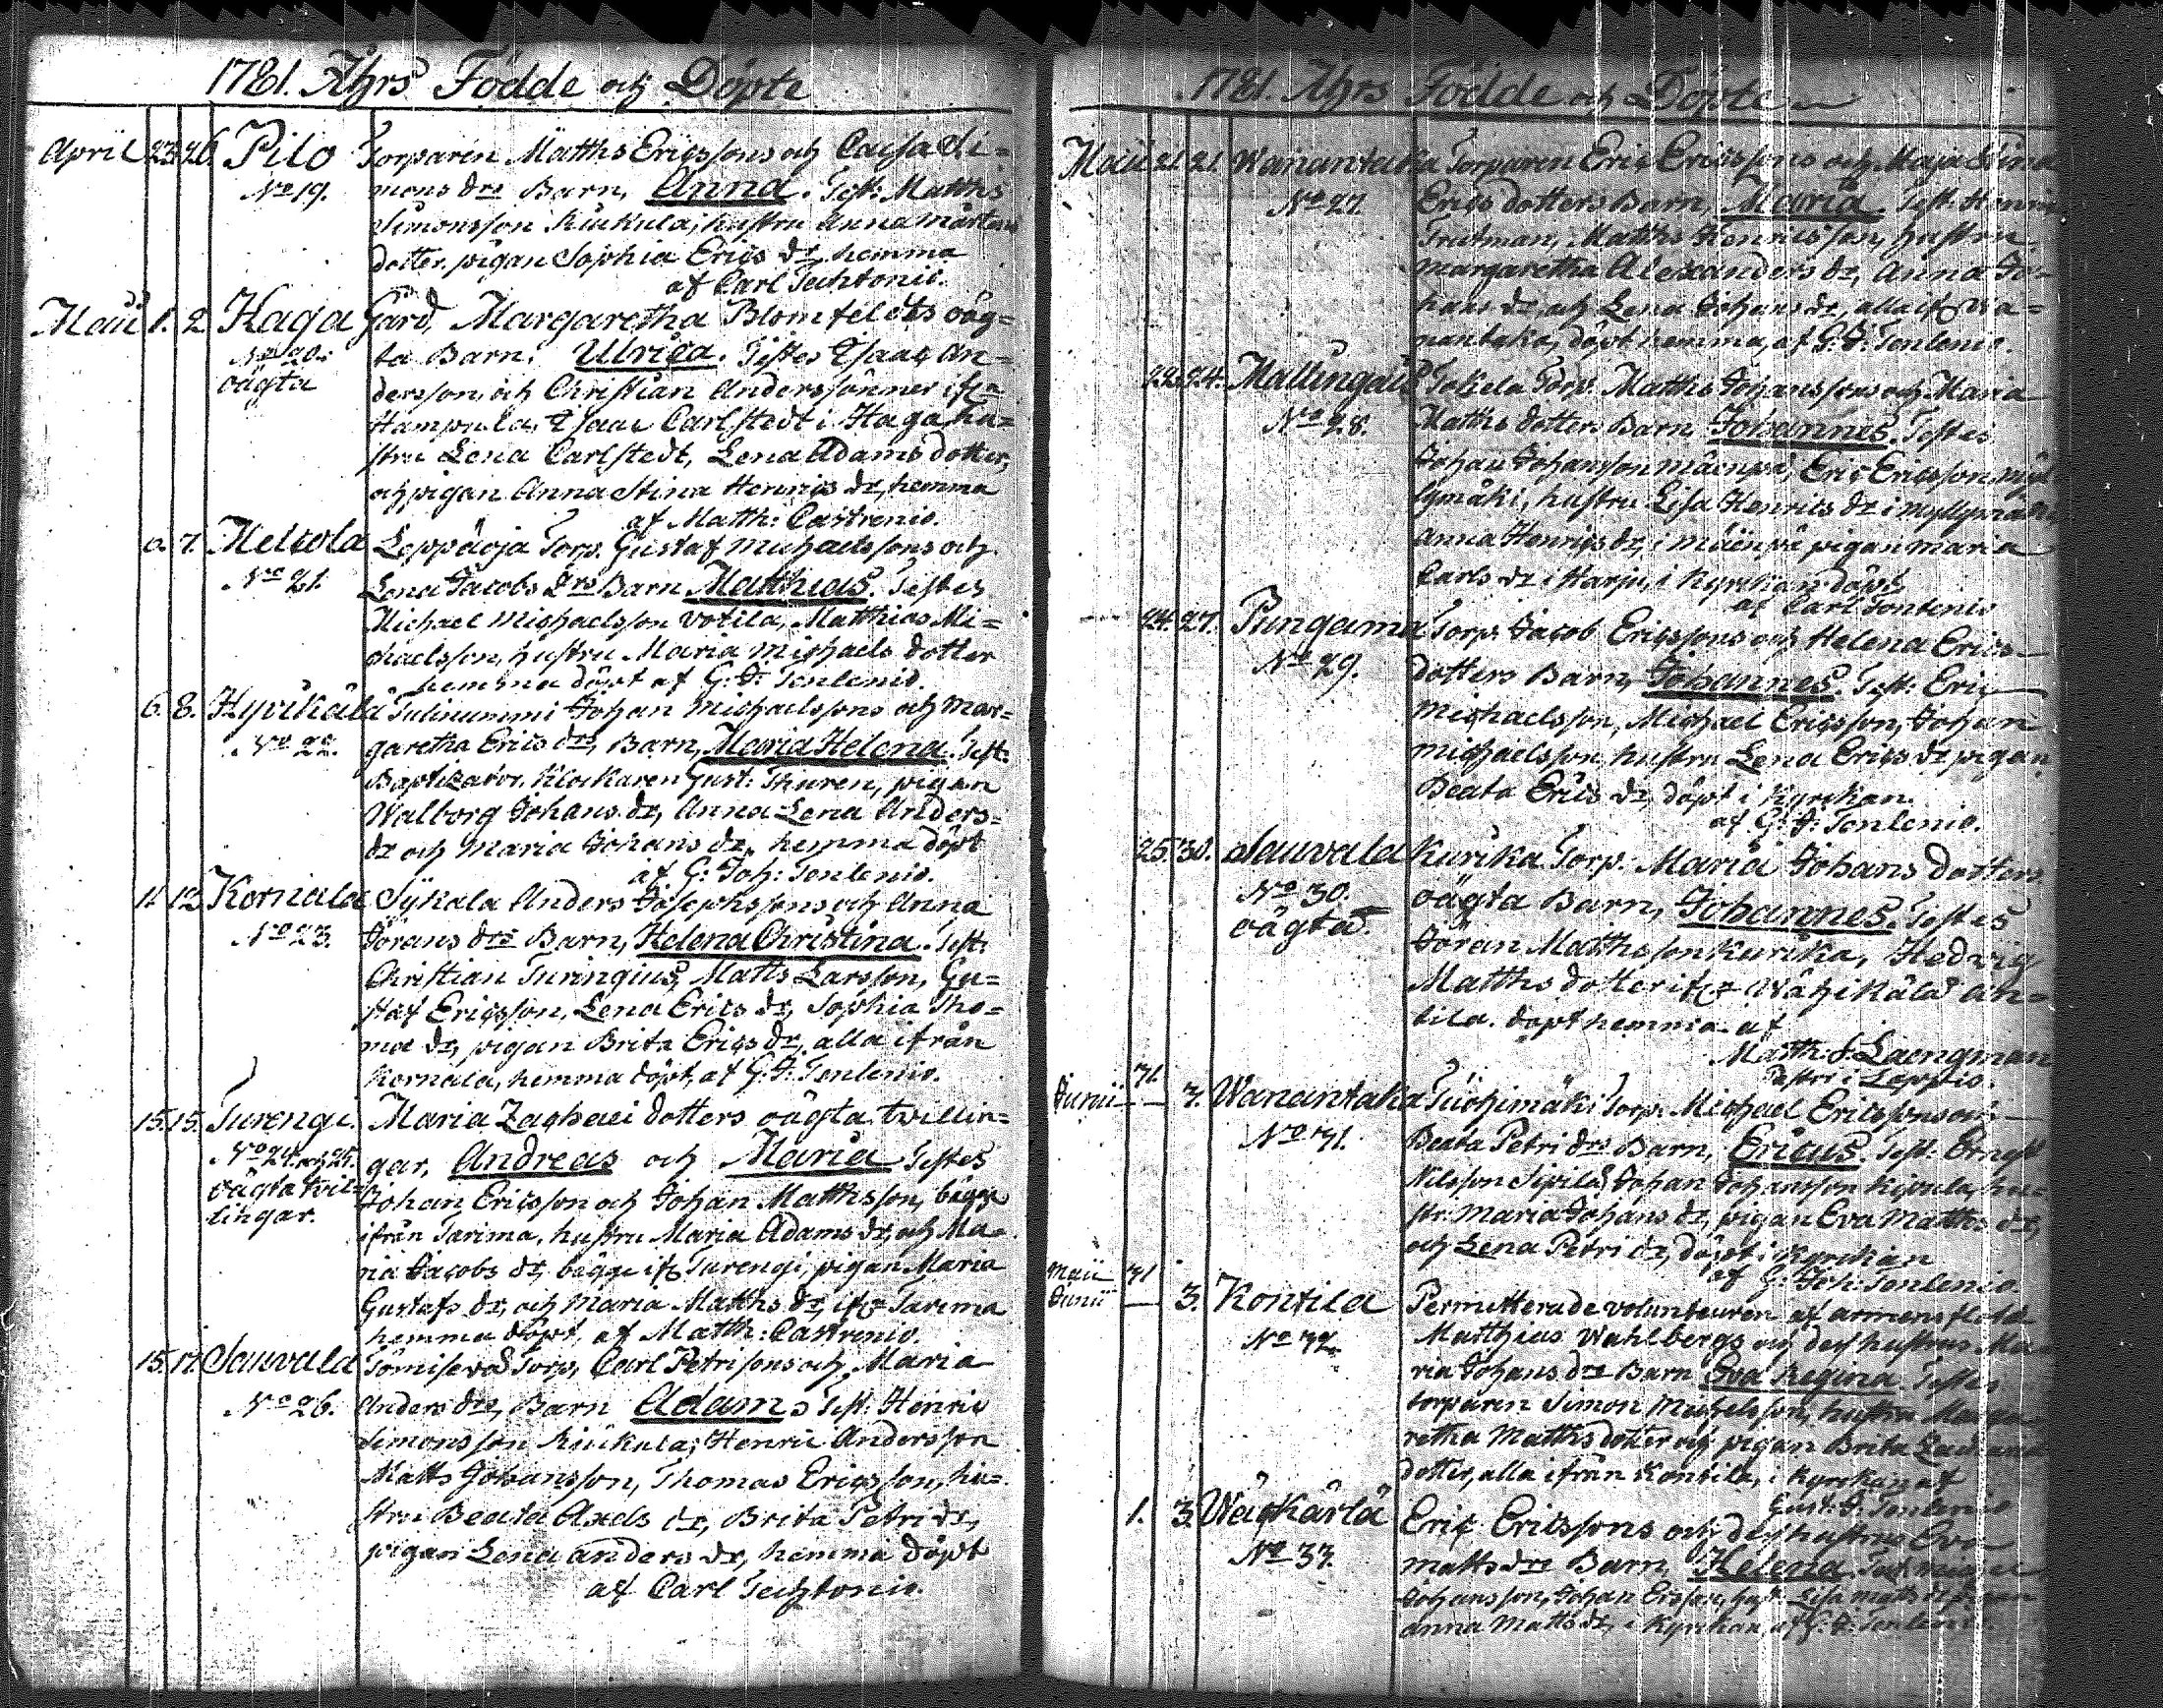 1781. Åhrs Födde och Döpte
April 23. 26. Pilo Torparen Matths Ericssons och Caisa Si=
No 19. mons drs Barn, Anna. Test: Matths
Simonsson Kiukula, hustru Anna Mårtens
dotter. pigan Sophia Erics dr, hemma
af Carl Techtonio.
Maii 1. 2. Haga Gård, Margaretha Blomfeldts oäg=
No 20. ta Barn. Ulrica. Testes Isaac An=
oägta dersson, och Christian Anderssöner ifr
Hampula, Isaac Carlstedt i Haga, hu=
stru Lena Carlstedt, Lena Adams dotter,
och pigan Anna Stina Henrics dr, hemma
af Matth: Castrenio.
6. 7. Heikola Leppäoja Torp. Gustaf Michaelssons och
No 21. Lena Jacobs drs Barn Matthias. Testes
Michael Michaelsson Votila, Matthias Mi=
chaelsson, hustru Maria Michaels dotter
hemma döpt af G: J: Tenlenio.
6. 8. Hyvikälä Tulinummi Johan Michaelssons och Mar=
No 22. garetha Erics drs, Barn, Maria Helena. Test:
Baptizator, Klockaren Gust: Thuren, pigan
Walborg Johans dr, Anna Lena Anders=
dr och Maria Johans dr, hemma döpt
af G: Joh: Tenlenio.
11. 12. Kernala Sykala Anders Josephssons och Anna
No 23. Görans drs Barn, Helena Christina. Test:
Christian Turingius, Matts Larsson, Gu=
staf Ericsson, Lena Erics dr, Sophia Tho=
mæ dr, pigan Brita Erics dr, alla ifrån
Kernala, hemma döpt, af G: J: Tenlenio.
15. 15. Turengi. Maria Zachæi dotters oägta twillin=
No 24. och 25. gar, Andreas och Maria Testes
oägta twil= Johan Ericsson och Johan Matthsson, bägge
lingar. ifrån Tarima, hustru Maria Adams dr, och Ma=
ria Jacobs dr, bägge ifr Turengi, pigan Maria
Gustafs dr, och Maria Matths dr, ifr Tarima
hemma döpt, af Matth: Castrenio.
15. 17. Sauvala Tömisevä Torp, Carl Petrisons och Maria
No 26. Anders drs, Barn Adam. Test: Henric
Simonsson Kiukula, Henric Andersson
Matts Johansson, Thomas Ericsson, hu=
stru Beata Axels dr, Brita Petri dr,
pigan Lena anders dr, hemma döpt
af Carl Techtonio.
1781. Åhrs Födde och Döpte
Maii 21. 21. Wanantaka Torparen Eric Ericssons och Maja Stina
No 27. Erics dotters Barn, Maria. Test: Henric
Trutman, Matths Henricsson, hustru
Margaretha Alexanders dr, Anna Jo=
hans dr, och Lena Johans dr, alla ifr Wa=
nantaka, döpt hemma, af G: J: Tenlenio.
22. 24. Mallingais Tokela Torp. Matths Johanssons och Maria
No 28. Matths dotters Barn Johannes. Testes
Johan Johansson Mäenpä, Eric Ericsson Myl
lymäki, hustru Lisa Henrics dr i Myllymäki
Anna Henrics dr, i Mäenpä pigan Maria
Carls dr i Harju, i Kyrckan döpt
af Carl Tontenio
24. 27. Pungama Torp. Jacob Ericssons och Helena Erics
No 29. dotters Barn, Johannes. Test: Eric
Michaelsson, Michael Ericsson, Johan
Michaelsson, hustru Lena Erics dr, pigan
Beata Erics dr, döpt i Kyrckan.
af G: J: Tenlenio.
25. 30. Sauvala Kurika Torp. Maria Johans dotters
No 30. oägta Barn, Johannes. Testes
oägta Jöran Matthsson Kurika, Hedvig
Matths dotter ifr Wähikälä An=
tila. döpt hemma af
Matth: J: Laengman
Past: i Loppis.
31.
Junii 3. Wanantaka Tuohimäki Torp. Michael Ericssons och
No 31. Beata Petri drs Barn, Ericus. Test: Ernst
Nilsson Sipilä, Johan Johansson Kipula, hu=
str: Maria Johans dr, pigan Eva Matths dr,
och Lena Petri dr, döpt i Kyrckan
af G: Joh: Tenlenio.
Maii 31
Junii 3. Kontila Permitterade volunteuren af armens flotta
No 32. Matthias Wahlbergs och dess hustrus Ma
ria Johans drs Barn Eva Regina. Testes
torparen Simon Michelsson, hustru Marga
retha Matths dotter och pigan Brita
dotter, alla ifrån Kontila, i Kyrckan af
Gust: J: Tenlenio
1. 3. Wäckärlä Eric Ericssons och dess hustrus Eva
No 33. Matts drs Barn, Helena. Test:
Johansson, Johan Ericsson, hust: Lisa Matts dr, pigan
Anna Matts dr, i Kyrckan af G: J: Tenlenio.